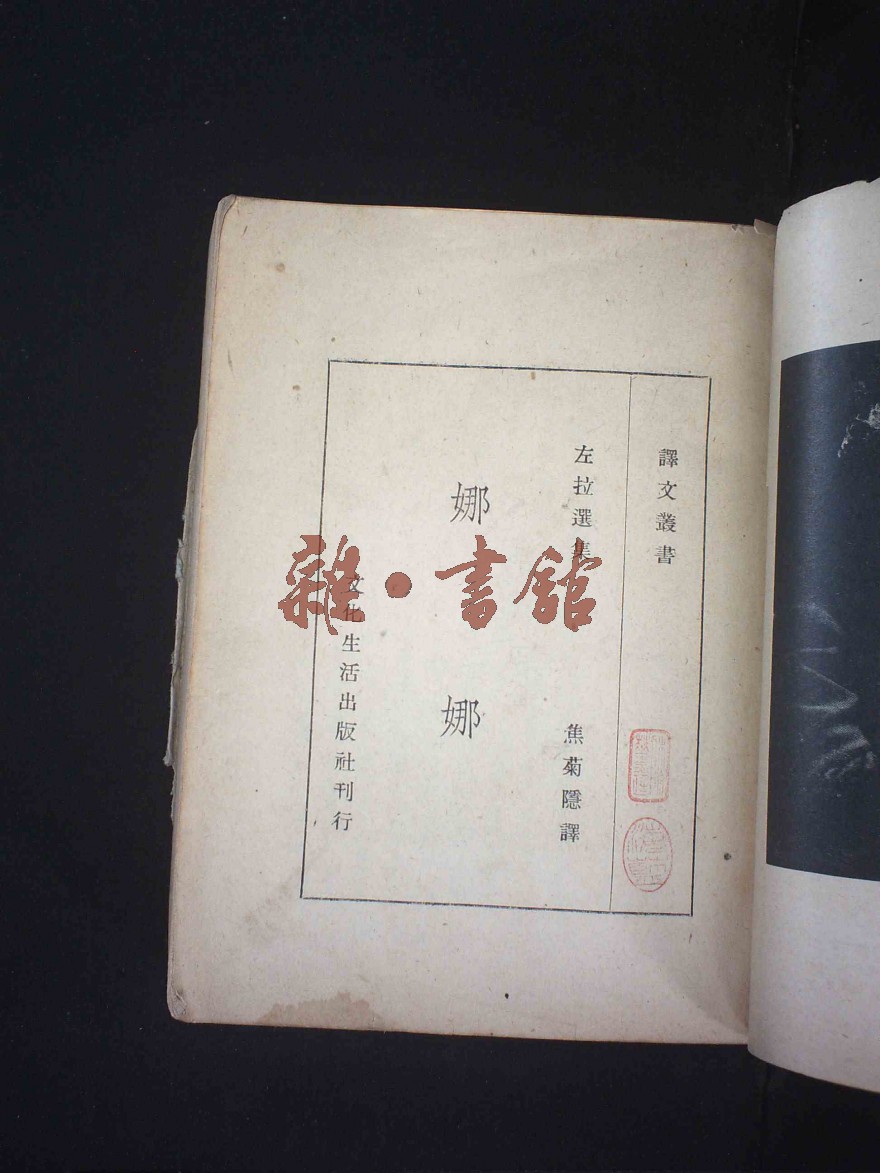 譯文叢書
左拉選集
焦菊隱譯
娜娜
文化生活出版社刊行
雜·書館